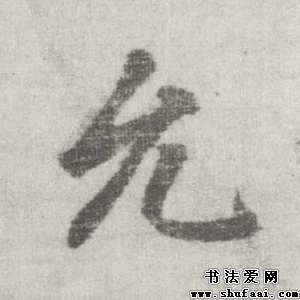 允
书法爱网
www.shufaai.com